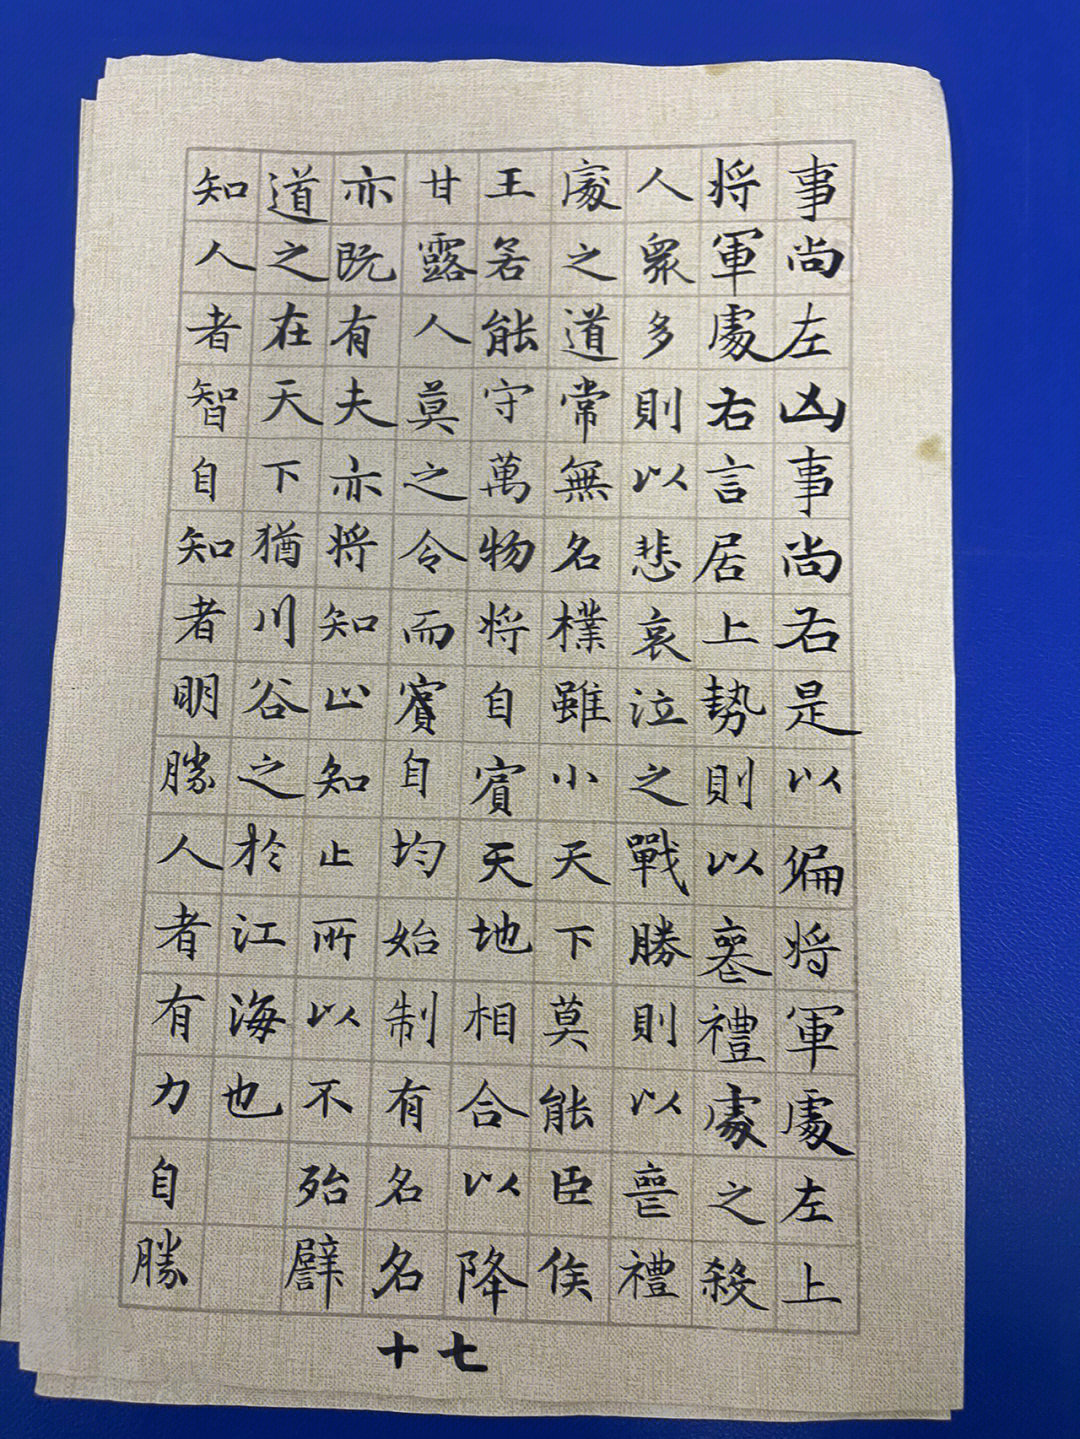 事尚左凶事尚右是以偏将軍處左上
将軍處右言居上勢則以喪禮處之殺
人衆多則以悲哀泣之戰勝則以喪禮
處之道常無名樸雖小天下莫能臣侯
王若能守萬物将自賓天地相合以降
甘露人莫之令而賓自均始制有名名
亦既有夫亦将知止知止所以不殆譬
道之在天下猶川谷之於江海也
知人者智自知者明勝人者有力自勝
十七